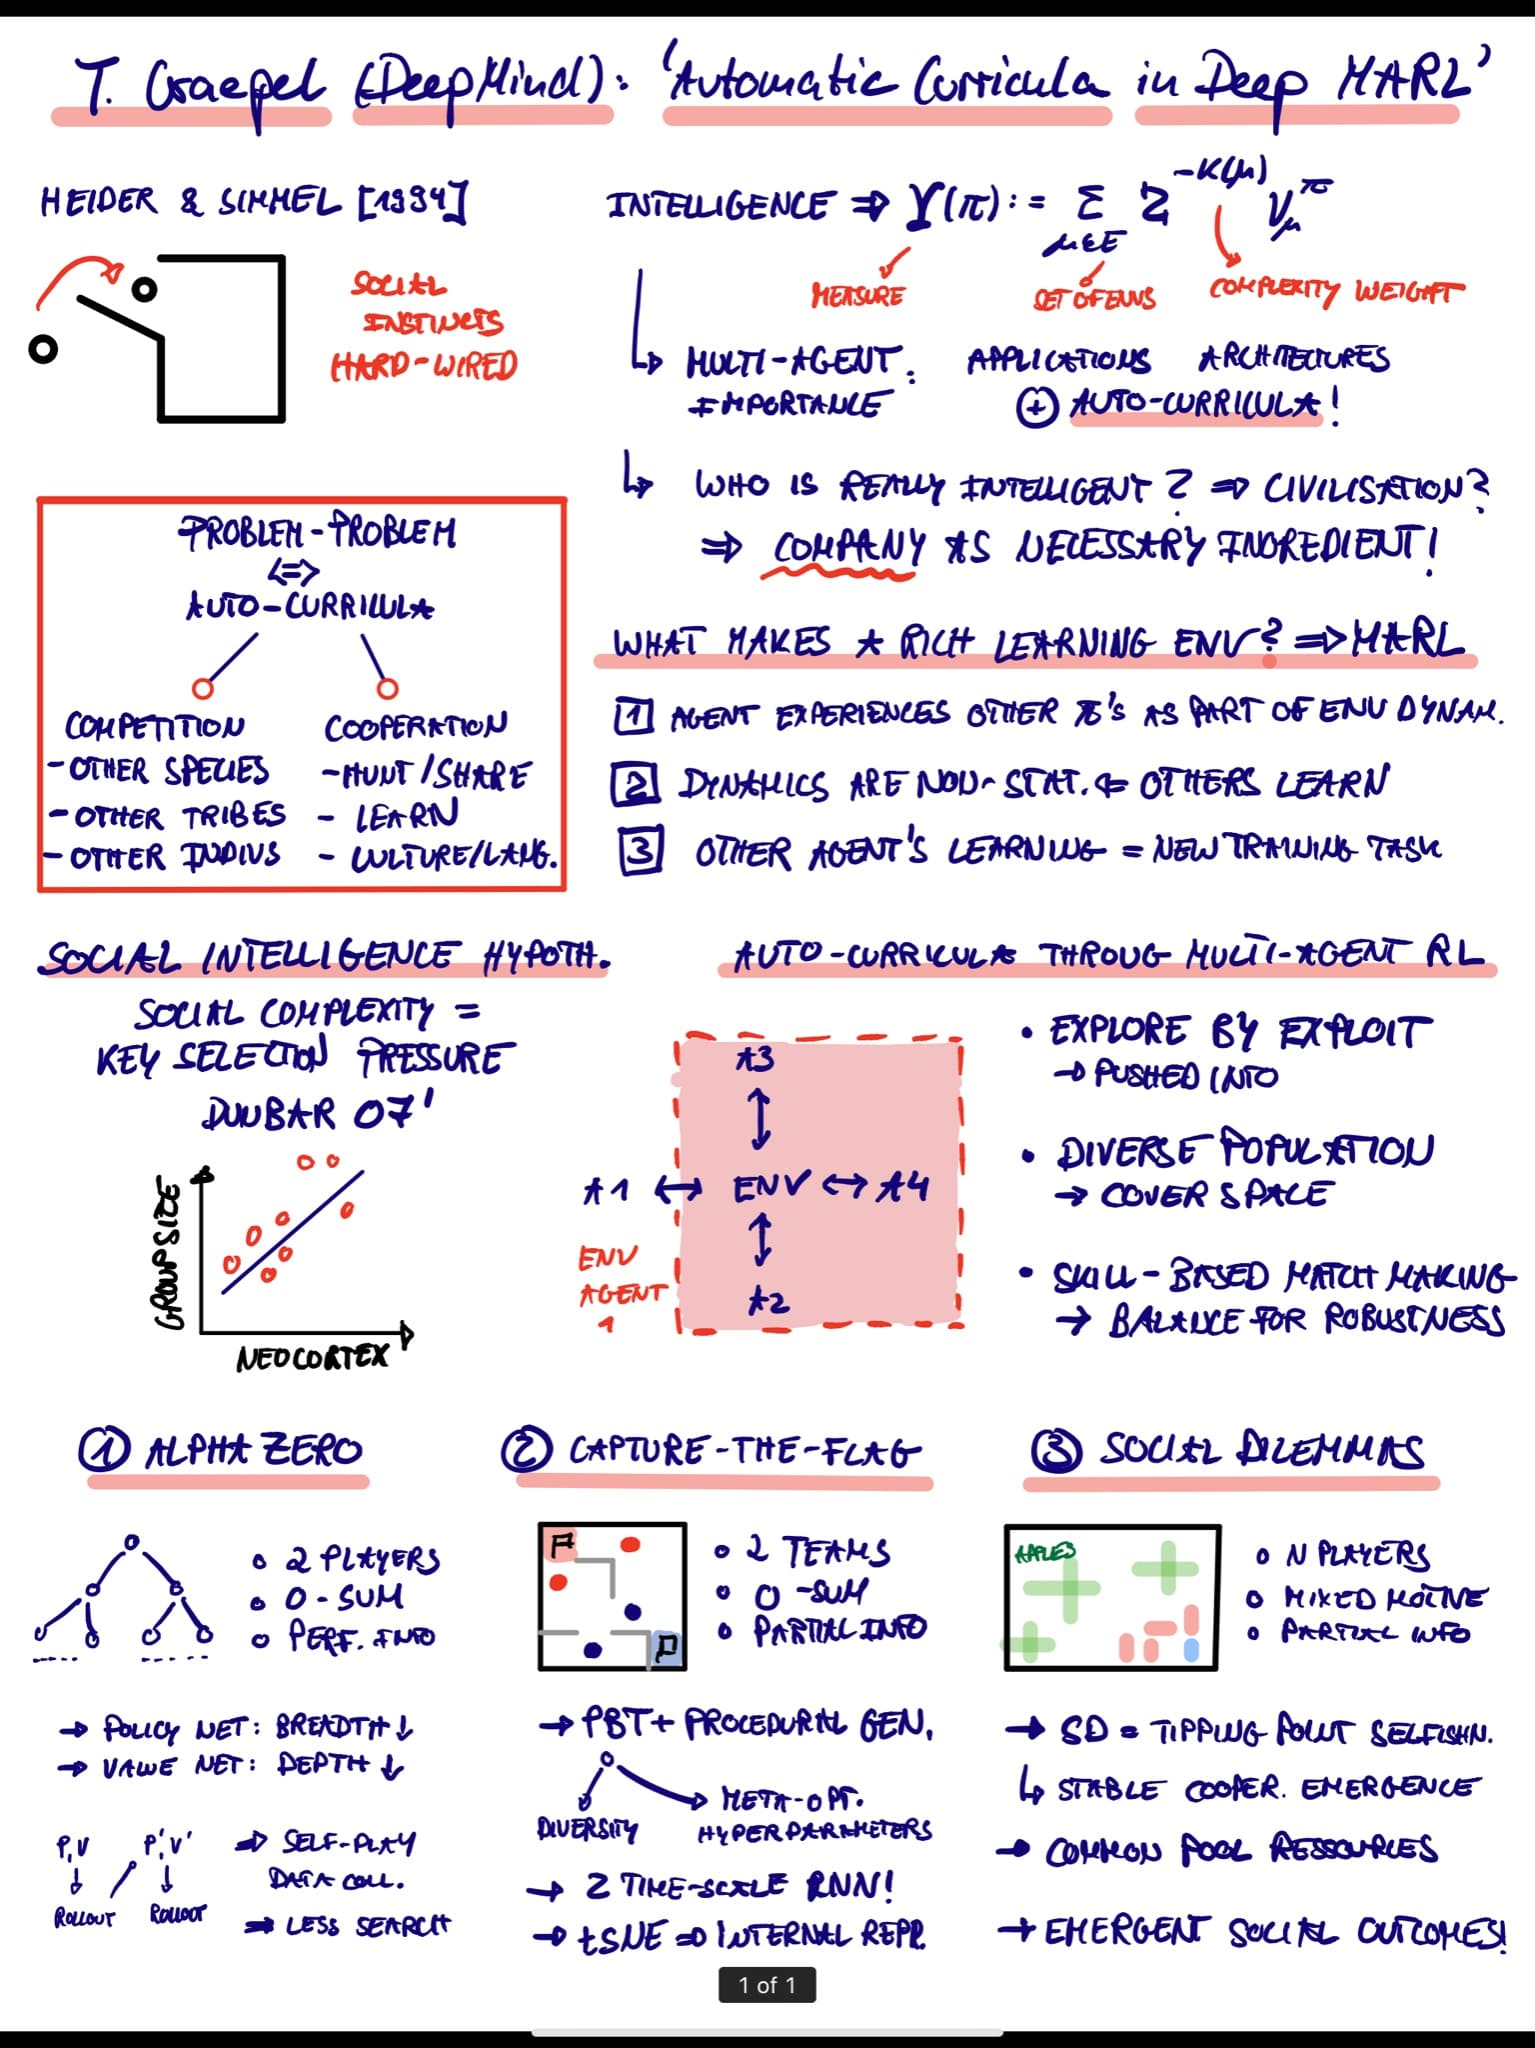 T. Graepel (DeepMind): 'Automatic Curricula in Deep MARL'
HEIDER & SIMMEL [1994]
SOCIAL
INSTINCTS
HARD-WIRED
INTELLIGENCE ⇒ Υ(π) := Σ_{μ∈E} 2^{-K(μ)} V_μ^π
MEASURE
SET OF ENVS
COMPLEXITY WEIGHT
MULTI-AGENT : APPLICATIONS ARCHITECTURES
IMPORTANCE
⊕ AUTO-CURRICULA!
↳ WHO IS REALLY INTELLIGENT? ⇒ CIVILISATION?
⇒ COMPANY AS NECESSARY INGREDIENT!
PROBLEM-PROBLEM
⇔
AUTO-CURRICULA
COMPETITION
- OTHER SPECIES
- OTHER TRIBES
- OTHER INDIVS
COOPERATION
- HUNT/SHARE
- LEARN
- CULTURE/LANG.
WHAT MAKES A RICH LEARNING ENV? ⇒ MARL
1 AGENT EXPERIENCES OTHER π's AS PART OF ENV DYNAM.
2 DYNAMICS ARE NON-STAT. ⇐ OTHERS LEARN
3 OTHER AGENT'S LEARNING = NEW TRAINING TASK
SOCIAL INTELLIGENCE HYPOTH.
SOCIAL COMPLEXITY =
KEY SELECTION PRESSURE
DUNBAR 07'
GROUP SIZE
NEOCORTEX
AUTO-CURRICULA THROUG MULTI-AGENT RL
A3
A1 ↔ ENV ↔ A4
A2
ENV
AGENT
1
• EXPLORE BY EXPLOIT
→ PUSHED INTO
• DIVERSE POPULATION
→ COVER SPACE
• SKILL-BASED MATCH MAKING
→ BALANCE FOR ROBUSTNESS
① ALPHA ZERO
o 2 PLAYERS
o 0-SUM
o PERF. INFO
→ POLICY NET: BREADTH ↓
→ VALUE NET: DEPTH ↓
P,V P',V' ⇒ SELF-PLAY
DATA COLL.
ROLLOUT ROLLOUT
⇒ LESS SEARCH
② CAPTURE-THE-FLAG
o 2 TEAMS
o 0-SUM
o PARTIAL INFO
→ PBT + PROCEDURAL GEN.
DIVERSITY
META-OPT.
HYPERPARAMETERS
→ 2 TIME-SCALE RNN!
→ tSNE ⇒ INTERNAL REPR.
③ SOCIAL DILEMMAS
APPLES
o N PLAYERS
o MIXED MOTIVE
o PARTIAL INFO
→ SD = TIPPING POINT SELFISHN.
↳ STABLE COOPER. EMERGENCE
→ COMMON POOL RESSOURCES
→ EMERGENT SOCIAL OUTCOMES!
1 of 1